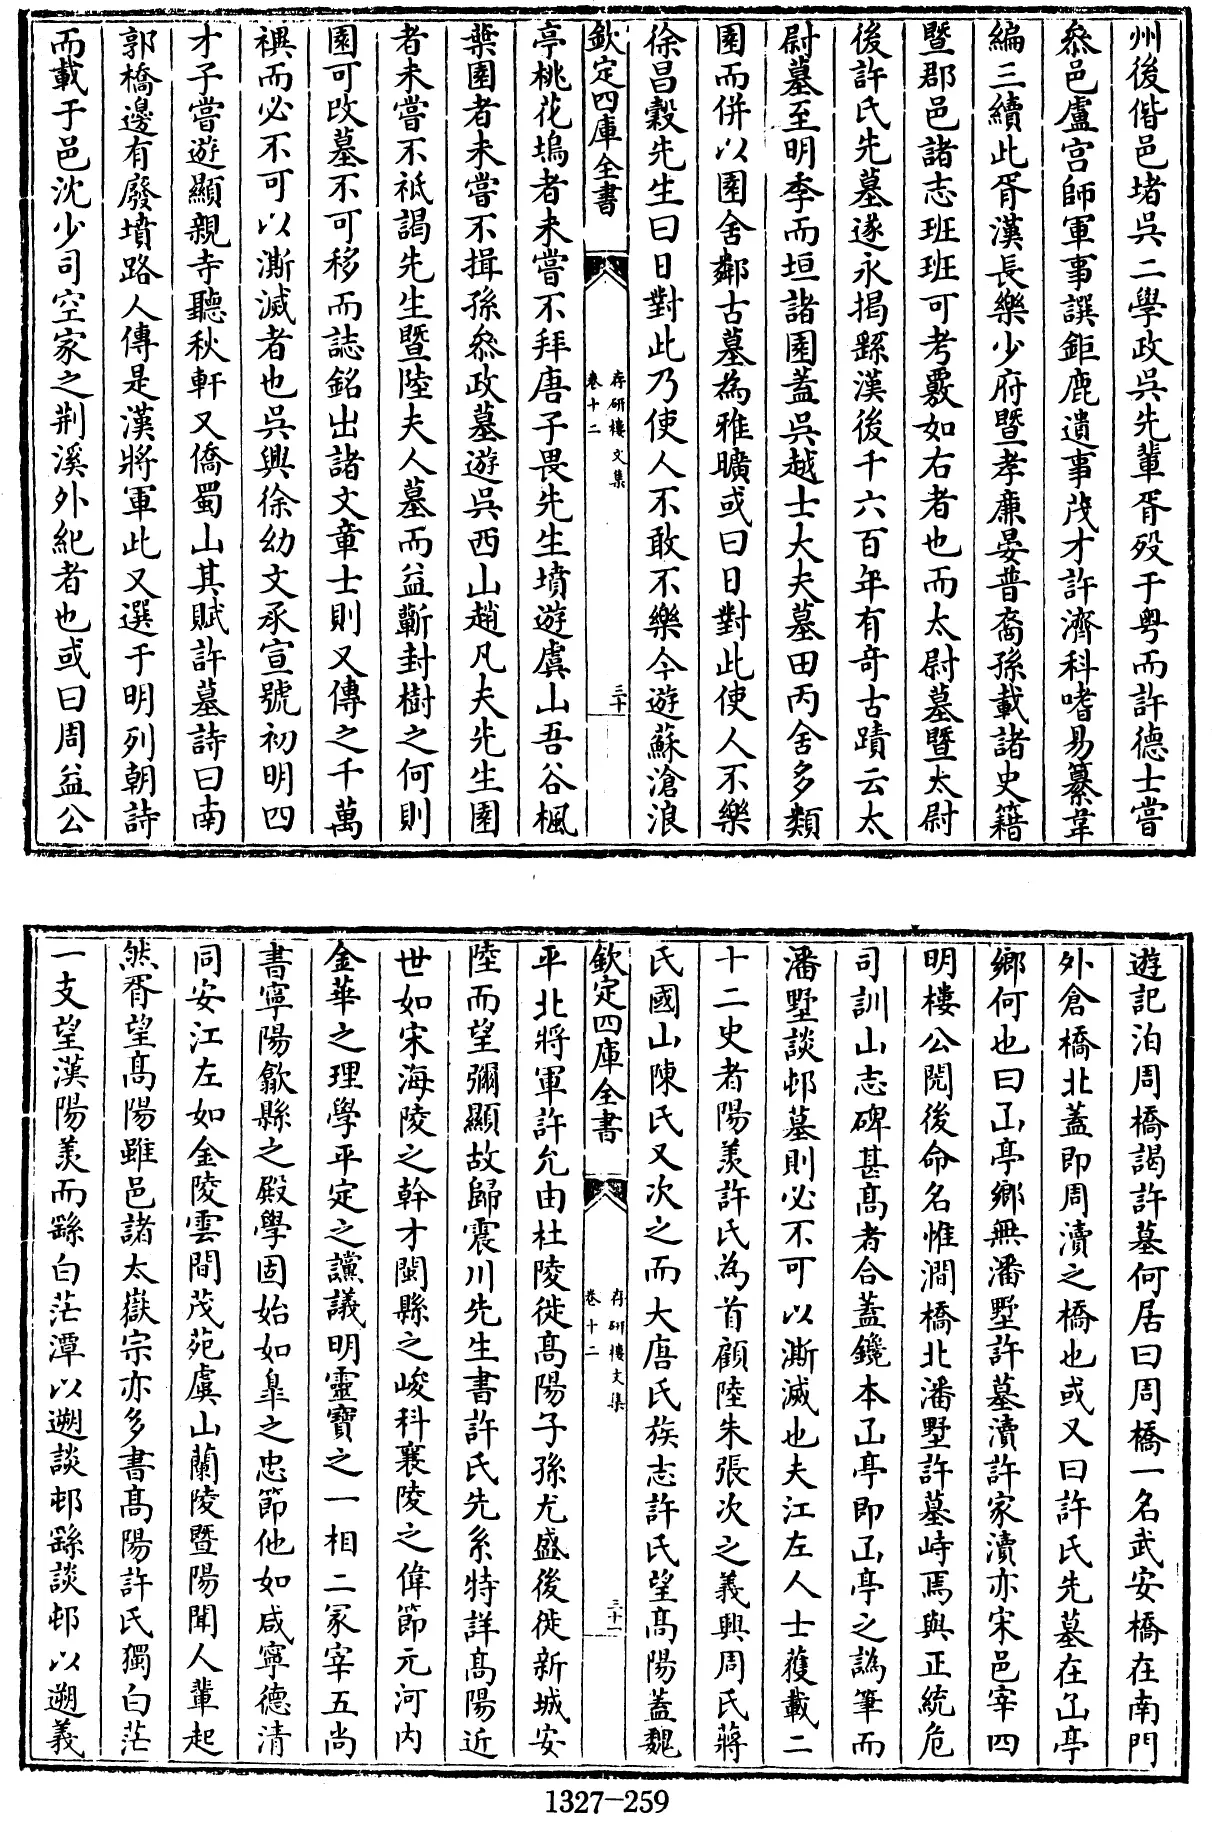 州後偕邑堵吳二學政吳先輩胥歿于粵而許德士嘗
叅邑盧宫師軍事譔鉅鹿遺事茂才許濟科嗜易纂韋
編三續此胥漢長樂少府暨孝廉晏普裔孫載諸史籍
暨郡邑諸志班班可考覈如右者也而太尉墓暨太尉
後許氏先墓遂永揭繇漢後千六百年有奇古蹟云太
尉墓至明季而垣諸園蓋吳越士大夫墓田丙舍多類
園而併以園舍鄰古墓為雅曠或曰日對此使人不樂
徐昌穀先生曰日對此乃使人不敢不樂今遊蘇滄浪
欽定四庫全書
存研樓文集
卷十二
三十
亭桃花塢者未嘗不拜唐子畏先生墳遊虞山吾谷楓
葉園者未嘗不揖孫叅政墓遊吳西山趙凡夫先生園
者未嘗不祗謁先生暨陸夫人墓而益蘄封樹之何則
園可改墓不可移而誌銘出諸文章士則又傳之千萬
禩而必不可以澌滅者也吳興徐幼文承宣號初明四
才子嘗遊顯親寺聽秋軒又僑蜀山其賦許墓詩曰南
郭橋邊有廢墳路人傳是漢將軍此又選于明列朝詩
而載于邑沈少司空家之荆溪外紀者也或曰周益公
遊記泊周橋謁許墓何居曰周橋一名武安橋在南門
外倉橋北蓋即周瀆之橋也或又曰許氏先墓在㠯亭
鄉何也曰㠯亭鄉無潘墅許墓瀆許家瀆亦宋邑宰四
明樓公閱後命名惟澗橋北潘墅許墓峙焉與正統危
司訓山志碑甚高者合蓋鑱本㠯亭即㠯亭之譌筆而
潘墅談邨墓則必不可以澌滅也夫江左人士蒦載二
十二史者陽羨許氏為首顧陸朱張次之義興周氏蔣
氏國山陳氏又次之而大唐氏族志許氏望高陽蓋魏
欽定四庫全書
存研樓文集
卷十二
三十一
平北將軍許允由杜陵徙高陽子孫尤盛後徙新城安
陸而望彌顯故歸震川先生書許氏先系特詳高陽近
世如宋海陵之幹才閩縣之峻科襄陵之偉節元河内
金華之理學平定之讜議明靈寶之一相二冢宰五尚
書寧陽歙縣之殿學固始如臯之忠節他如咸寧德清
同安江左如金陵雲間茂苑虞山蘭陵暨陽聞人輩起
然胥望高陽雖邑諸太嶽宗亦多書高陽許氏獨白茫
一支望漢陽羨而繇白茫潭以遡談邨繇談邨以遡義
1327-259